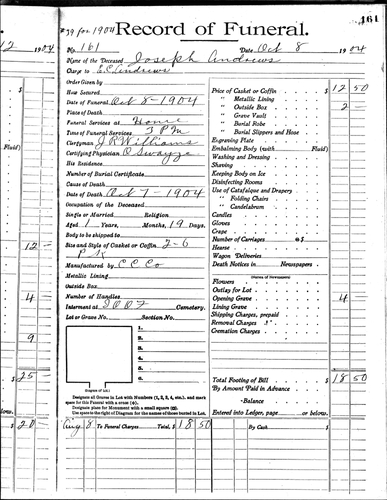 #39 for 1904
Record of Funeral.
161
12 1904
No. 161 Date, Oct 8 1904
Name of the Deceased Joseph Andrews
Charge to E. C. Andrews
Order Given by
How Secured
Date of Funeral Oct 8-1904
Place of Death
Funeral Services at Home
Time of Funeral Services 3 P M
Clergyman J R Williams
Certifying Physician O Swayze
His Residence
Number of Burial Certificate
Cause of Death
Date of Death Oct 7-1904
Occupation of the Deceased
Single or Married Religion
Aged 1 Years, Months 19 Days.
Body to be shipped to
Size and Style of Casket or Coffin 2-6
P K
Manufactured by C C Co
Metallic Lining
Outside Box
Number of Handles
Interment at I O O F Cemetery.
Lot or Grave No. Section No.
1.
2.
3.
4.
5.
6.
(Diagram of Lot.)
Designate all Graves in Lot with Numbers (1, 2, 3, 4, etc.), and mark
space for this Funeral with a cross (+).
Designate place for Monument with a small square (□).
Use space to the right of Diagram for the names of those buried in Lot.
Aug 8 To Funeral Charges Total, $ 18 50
Price of Casket or Coffin $ 12 50
" Metallic Lining
" Outside Box 2 -
" Grave Vault
" Burial Robe
" Burial Slippers and Hose
Engraving Plate
Embalming Body (with Fluid)
Washing and Dressing
Shaving
Keeping Body on Ice
Disinfecting Rooms
Use of Catafalque and Drapery
" Folding Chairs
" Candelabrum
Candles
Gloves
Crape
Number of Carriages @$
Hearse
Wagon Deliveries
Death Notices in Newspapers
(Names of Newspapers)
Flowers
Outlay for Lot
Opening Grave 4 -
Lining Grave
Shipping Charges, prepaid
Removal Charges
Cremation Charges
Total Footing of Bill $ 18 50
By Amount Paid in Advance
Balance
Entered into Ledger, page or below.
By Cash $
Fluid)
$
12 -
4
9
$ 25 -
below.
$ 20 -